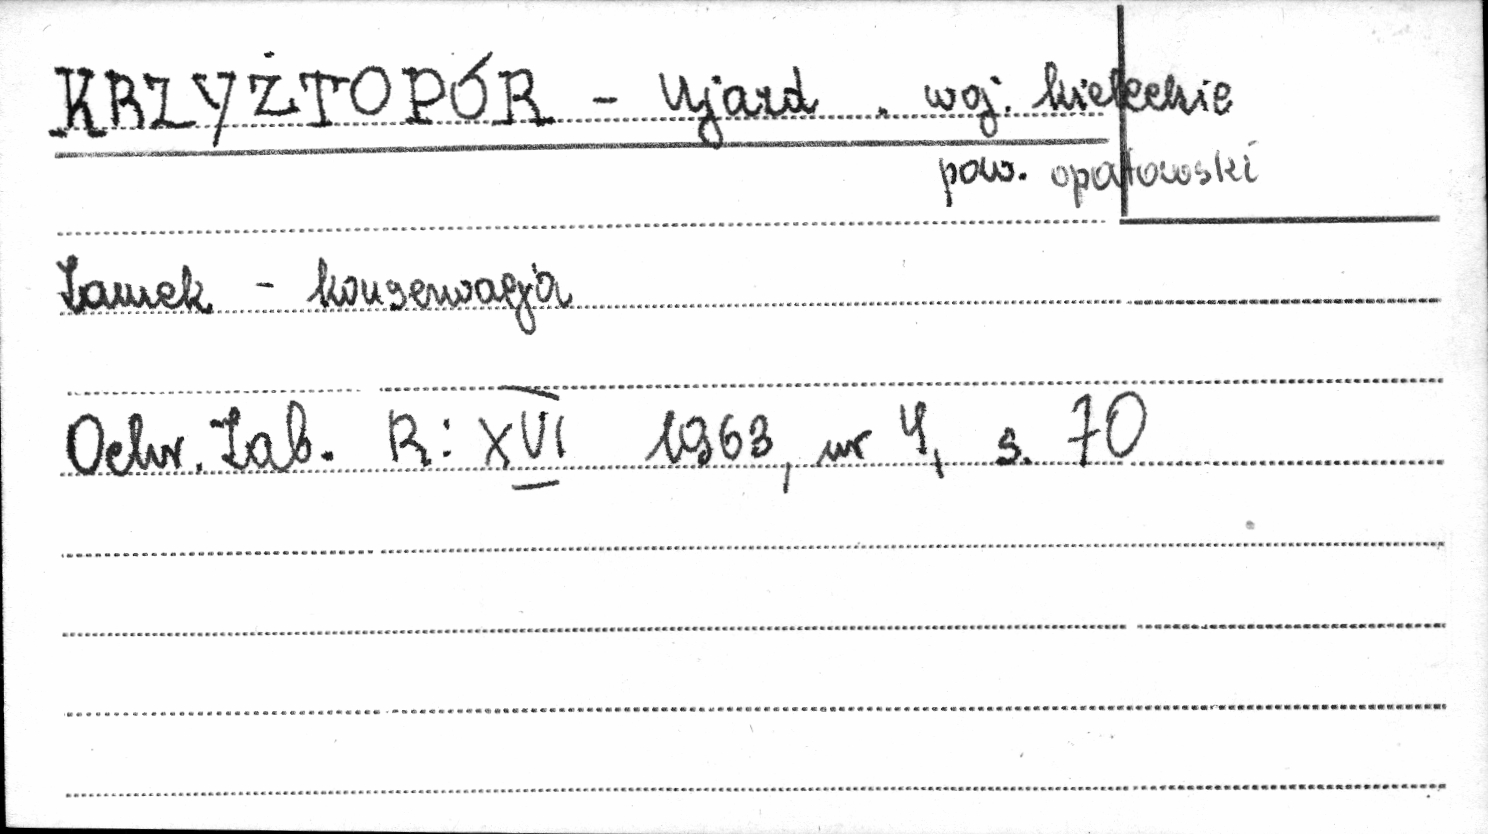 KRZYŻTOPÓR - Ujazd . woj. kieleckie
pow. opatowski
Zamek - konserwacja
Ochr. Zab. R: XVI 1963, nr 4, s. 70